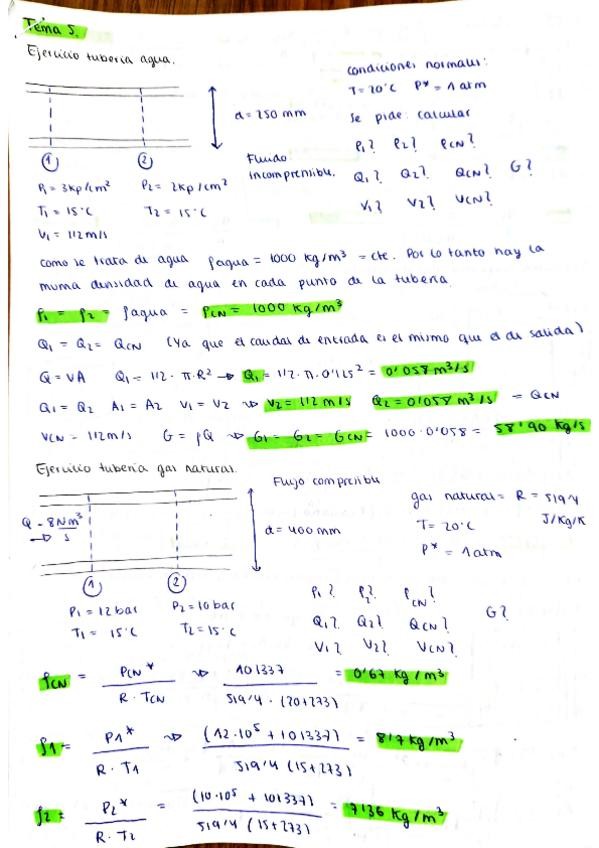 Tema 5.
Ejercicio tubería agua.
condiciones normales:
T=20°C P* = 1 atm
se pide: calcular
d = 250 mm
ρ1? ρ2? ρCN?
Fluido incompresible.
Q1? Q2? QCN? G?
V1? V2? VCN?
① ②
P1 = 3Kp/cm² P2 = 2Kp/cm²
T1 = 15°C T2 = 15°C
V1 = 1'2 m/s
como se trata de agua ρagua = 1000 kg/m³ = cte. Por lo tanto hay la
misma densidad de agua en cada punto de la tubería.
ρ1 = ρ2 = ρagua = ρCN = 1000 kg/m³
Q1 = Q2 = QCN (Ya que el caudal de entrada es el mismo que el de salida)
Q = VA Q1 = 1'2 · π·R² → Q1 = 1'2 · π·0'125² = 0'058 m³/s
Q1 = Q2 A1 = A2 V1 = V2 → V2 = 1'2 m/s Q2 = 0'058 m³/s = QCN
VCN = 1'2 m/s G = ρQ → G1 = G2 = GCN = 1000·0'058 = 58'90 Kg/s
Ejercicio tubería gas natural.
Flujo compresible
gas natural = R = 519'4 J/Kg/K
Q = 8 Nm³/s
d = 400 mm
T = 20°C
P* = 1 atm
① ②
P1 = 12 bar P2 = 10 bar
T1 = 15°C T2 = 15°C
ρ1? ρ2? ρCN?
Q1? Q2? QCN? G?
V1? V2? VCN?
ρCN = PCN* / R·TCN → 101337 / 519'4 · (20+273) = 0'67 kg/m³
ρ1 = P1* / R·T1 → (12·10⁵ + 101337) / 519'4 (15+273) = 8'7 kg/m³
ρ2 = P2* / R·T2 = (10·10⁵ + 101337) / 519'4 (15+273) = 7'36 kg/m³